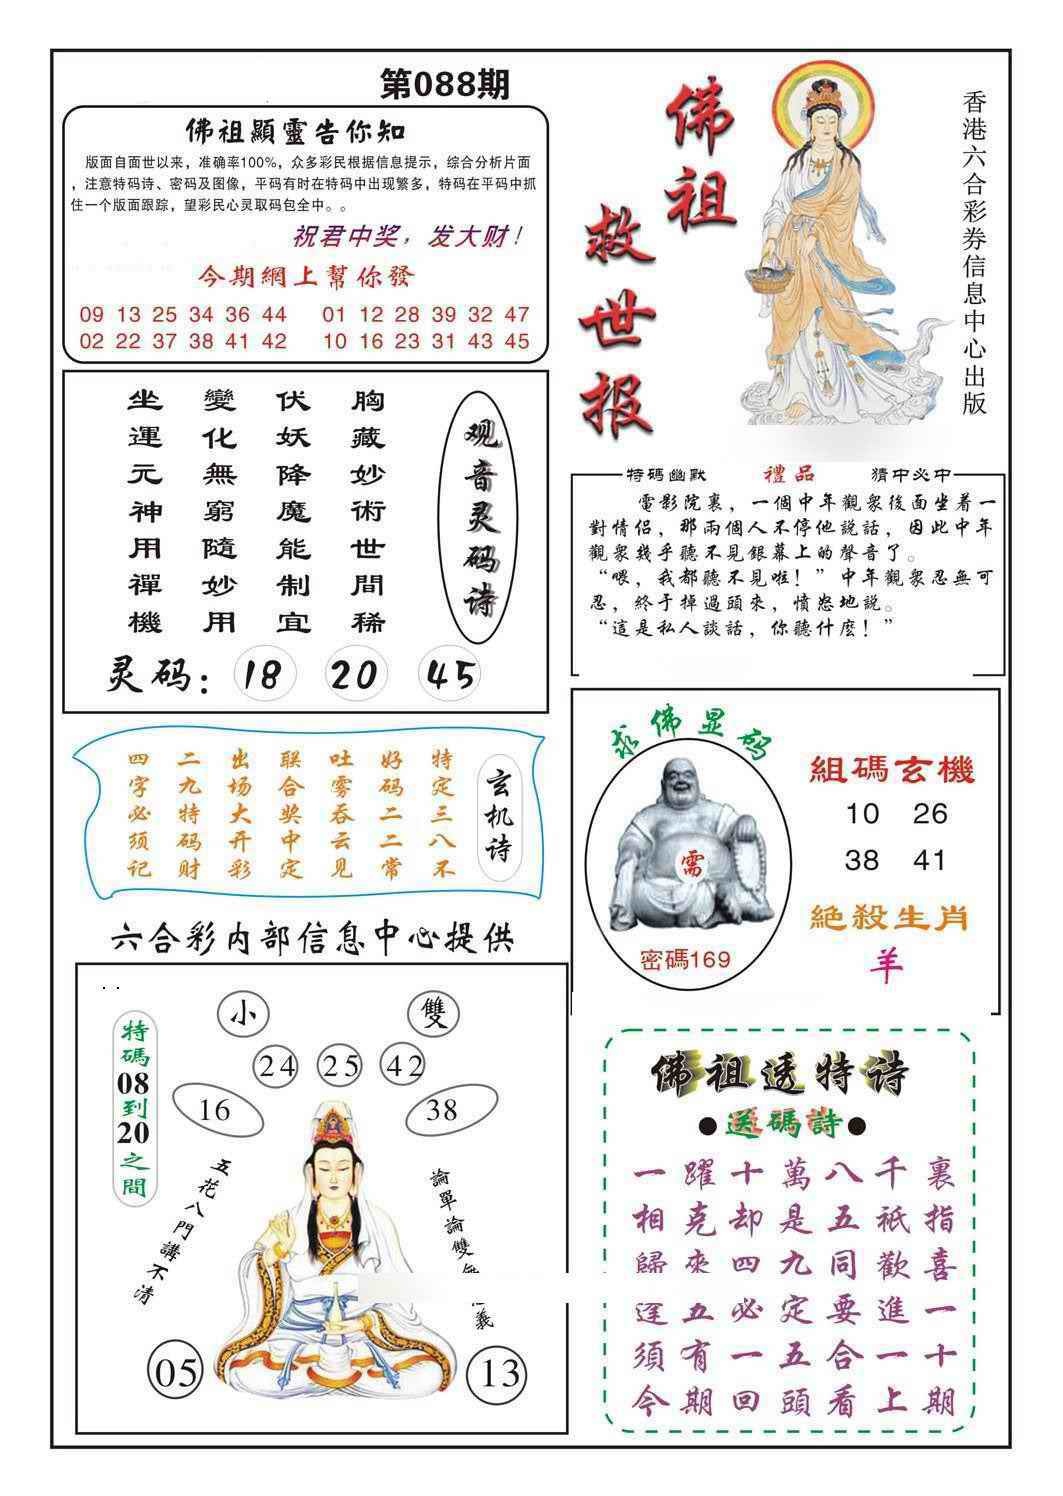 第088期
佛祖顯靈告你知
版面自面世以来，准确率100%，众多彩民根据信息提示，综合分析片面
，注意特码诗、密码及图像，平码有时在特码中出现繁多，特码在平码中抓
住一个版面跟踪，望彩民心灵取码包全中。。
祝君中奖，发大财！
今期網上幫你發
09 13 25 34 36 44 01 12 28 39 32 47
02 22 37 38 41 42 10 16 23 31 43 45
佛祖
救世报
香港六合彩券信息中心出版
观音灵码诗
胸藏妙術世間稀
伏妖降魔能制宜
變化無窮隨妙用
坐運元神用禪機
灵码：18 20 45
特码幽默 禮品 猜中必中
電影院裏，一個中年觀衆後面坐着一
對情侣，那兩個人不停他説話，因此中年
觀衆幾乎聽不見銀幕上的聲音了。
“喂，我都聽不見啦！”中年觀衆忍無可
忍，終于掉過頭來，憤怒地説。
“這是私人談話，你聽什麽！”
玄机诗
特定三八不
好码二二常
吐雾吞云见
联合奖中定
出场大开彩
二九特码财
四字必须记
求佛显码
需
密碼169
組碼玄機
10 26
38 41
絕殺生肖
羊
六合彩内部信息中心提供
特碼08到20之間
小 雙
24 25 42
16 38
五花八門講不清
論單論雙無 義
05 13
佛祖透特诗
●送碼詩●
一躍十萬八千裏
相克却是五祇指
歸來四九同歡喜
逢五必定要進一
須有一五合一十
今期回頭看上期